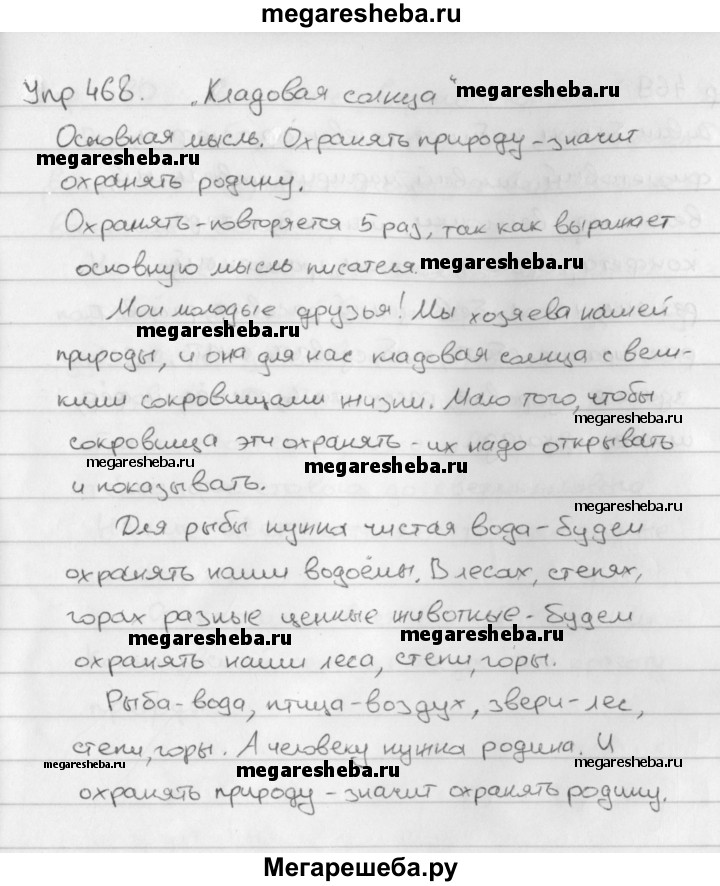 megaresheba.ru
Упр 468. „Кладовая солнца" megaresheba.ru
Основная мысль. Охранять природу - значит
megaresheba.ru
охранять родину.
Охранять - повторяется 5 раз, так как выражает
основную мысль писателя. megaresheba.ru
Мои молодые друзья! Мы хозяева нашей
megaresheba.ru
природы, и она для нас кладовая солнца с вели-
кими сокровищами жизни. Мало того, чтобы
megaresheba.ru
сокровища эти охранять - их надо открывать
megaresheba.ru megaresheba.ru
и показывать.
megaresheba.ru
Для рыбы нужна чистая вода - будем
охранять наши водоёмы. В лесах, степях,
горах разные ценные животные - будем
megaresheba.ru megaresheba.ru
охранять наши леса, степи, горы.
Рыба - вода, птица - воздух, звери - лес,
степи, горы. А человеку нужна родина. И
megaresheba.ru megaresheba.ru megaresheba.ru
охранять природу - значит охранять родину.
Мегарешеба.ру